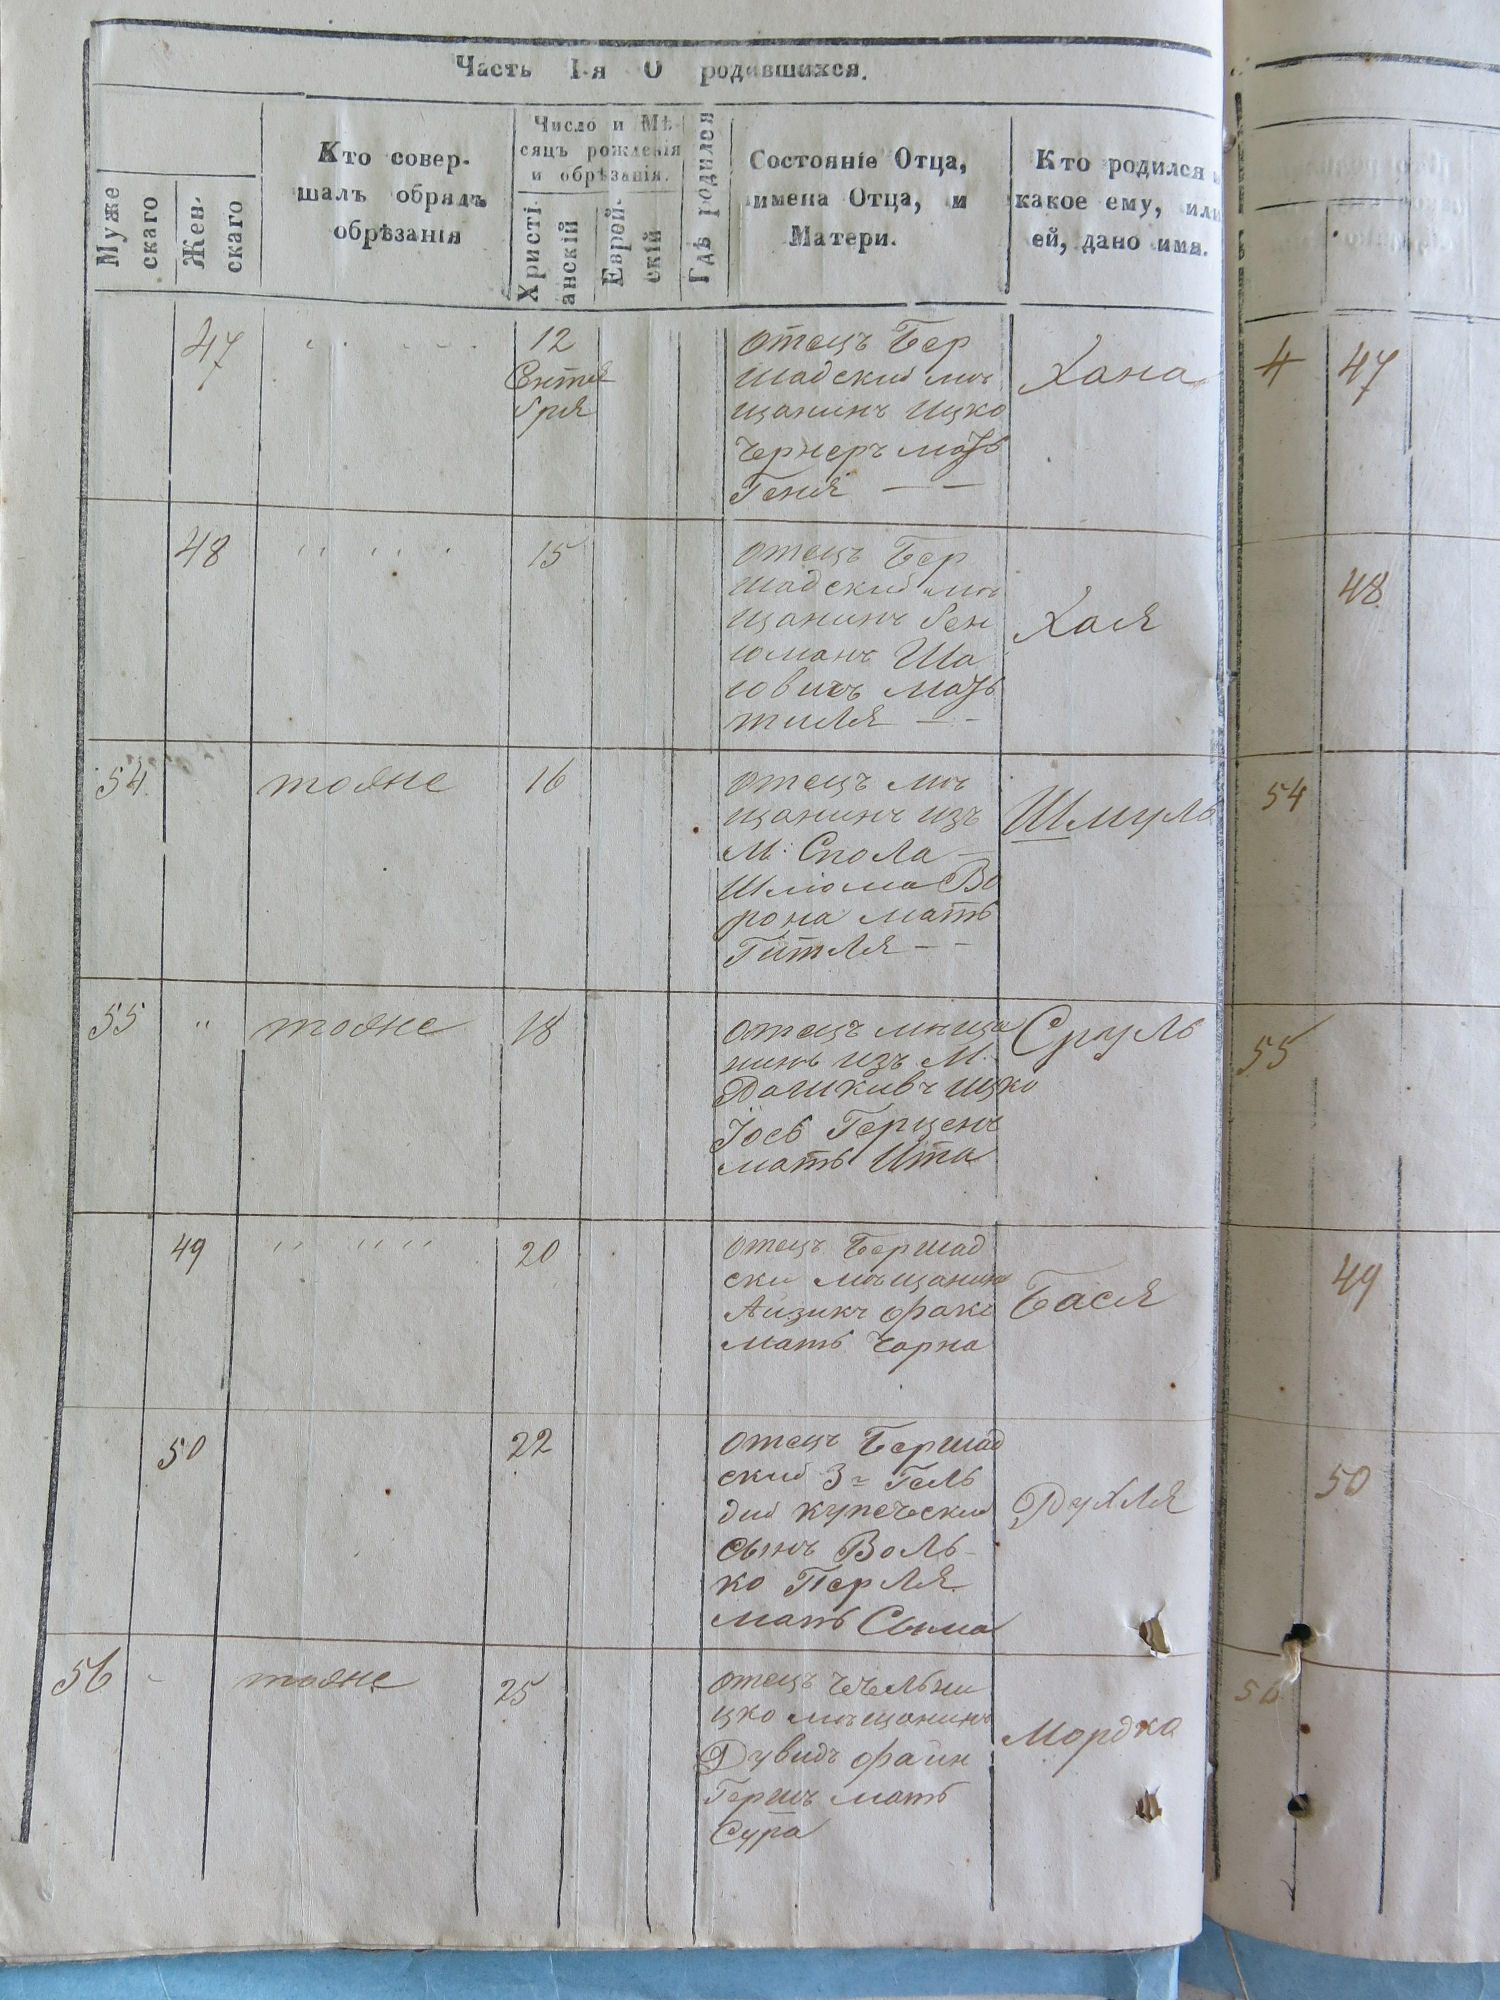 Часть I-я О родившихся.
Муже
скаго
Жен-
скаго
Кто совер-
шалъ обрядъ
обрѣзанія
Число и Мѣ-
сяцъ рожденія
и обрѣзанія.
Христі
анскій
Еврей-
скій
Гдѣ родился
Состояніе Отца,
имена Отца, и
Матери.
Кто родился и
какое ему, или
ей, дано имя.
47
12
Сентя
бря
отецъ Бер
шадский мѣ
щанинъ Ицко
Чернеръ мать
Геня — —
Хана
4 47
48
15
отецъ Бер
шадский мѣ
щанинъ Бен
Ша
мать
тиля — -
Хая
48
54
тояне
16
отецъ мѣ
щанинъ изъ
М. Спола
Шлиома Во
рона мать
Гитля - -
Шмуль
54
55 "
тояне
18
отецъ мѣща
нинъ изъ М.
Дашкивъ Ицко
Іось Герценъ
мать Ита
Сруль
55
49
20
отецъ Бершад
ски мѣщанинъ
Аизикъ
мать Чарна
Бася
49
50
22
отецъ Бершад
ский 3- Гель
дий купеческий
сынъ Воль-
ко Перля
мать Сима
Рухля
50
56 -
тояне
25
отецъ Чечельни
цко мѣщанинъ
Дувидъ Фаин
Гершъ мать
Сура
Мордко
56